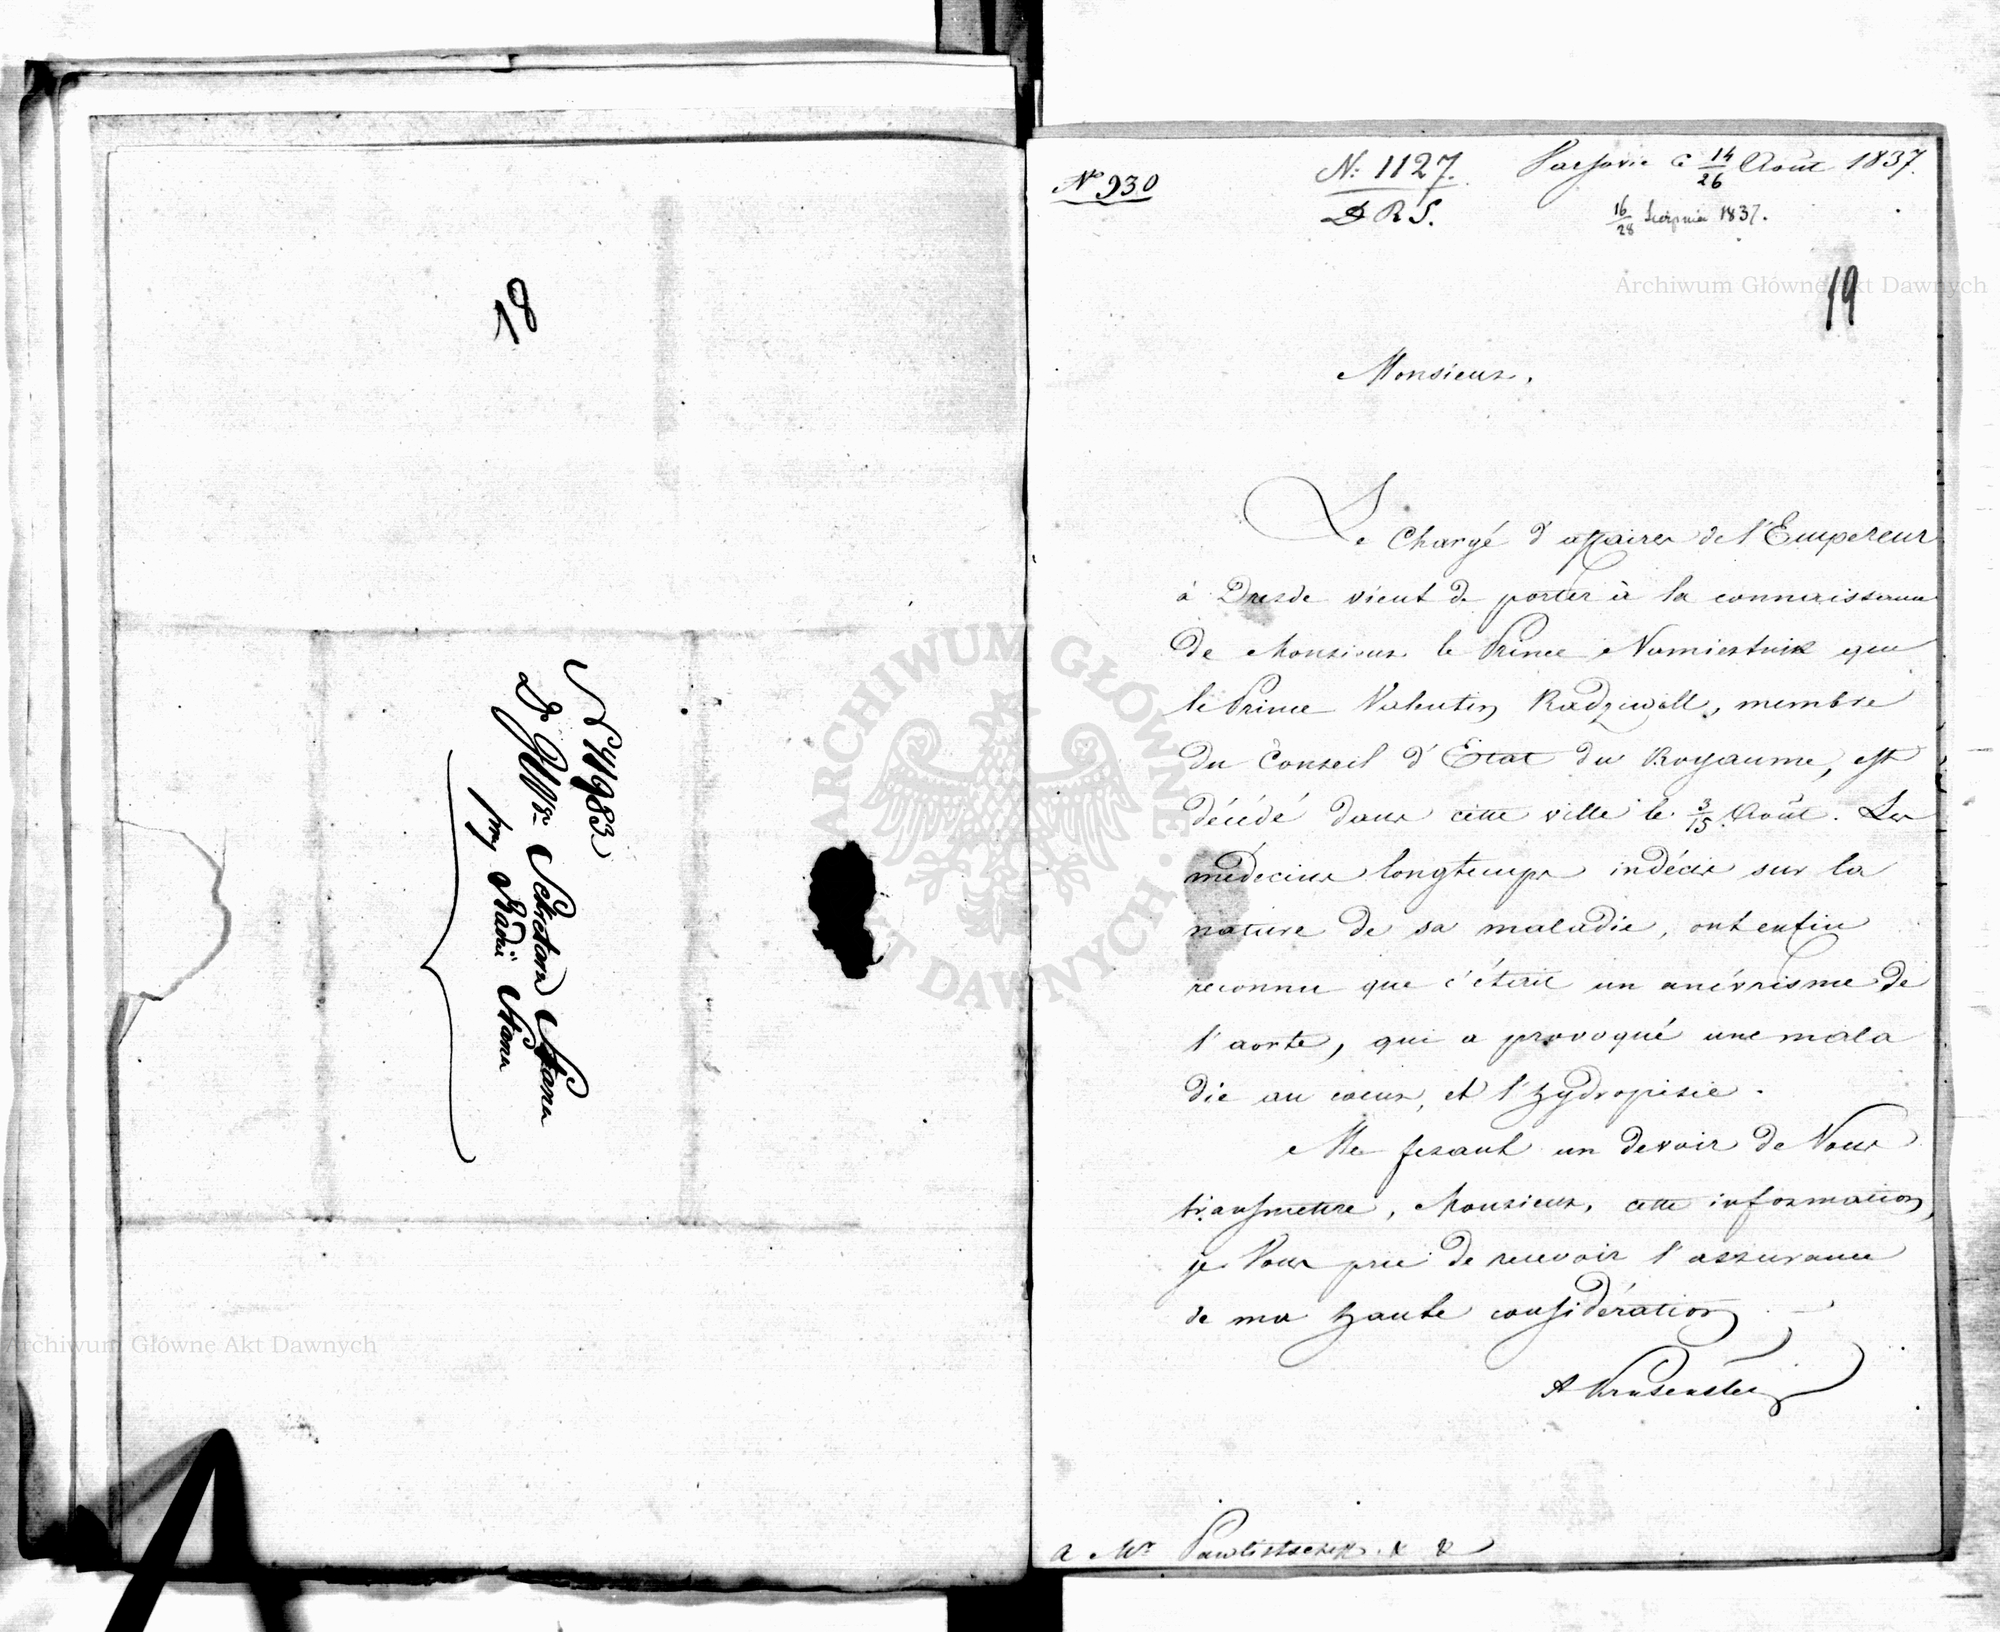 N 47983
D JWr Sekretarza Stanu
przy Radzie Stanu
No 930
N: 1127.
D R S.
Varsovie ce 14/26 Août 1837.
16/28 Sierpnia 1837.
19
Monsieur,
Le Chargé d'affaires de l'Empereur
à Dresde vient de porter à la connaissance
de Monsieur le Prince Namiestnik que
le Prince Valentin Radziwill, membre
du Conseil d'Etat du Royaume, est
décédé dans cette ville le 3/15 Août. Les
médecins longtemps indécis sur la
nature de sa maladie, ont enfin
reconnu que c'était un anévrisme de
l'aorte, qui a provoqué une mala
die au coeur, et l'hydropisie.
Me fesant un devoir de Vous
transmettre, Monsieur, cette information,
je Vous prie de recevoir l'assurance
de ma haute considération.
A Krusenstern
a Mr Pawlistscheff. &. &.
ARCHIWUM GŁÓWNE AKT DAWNYCH
Archiwum Główne Akt Dawnych
Archiwum Główne Akt Dawnych